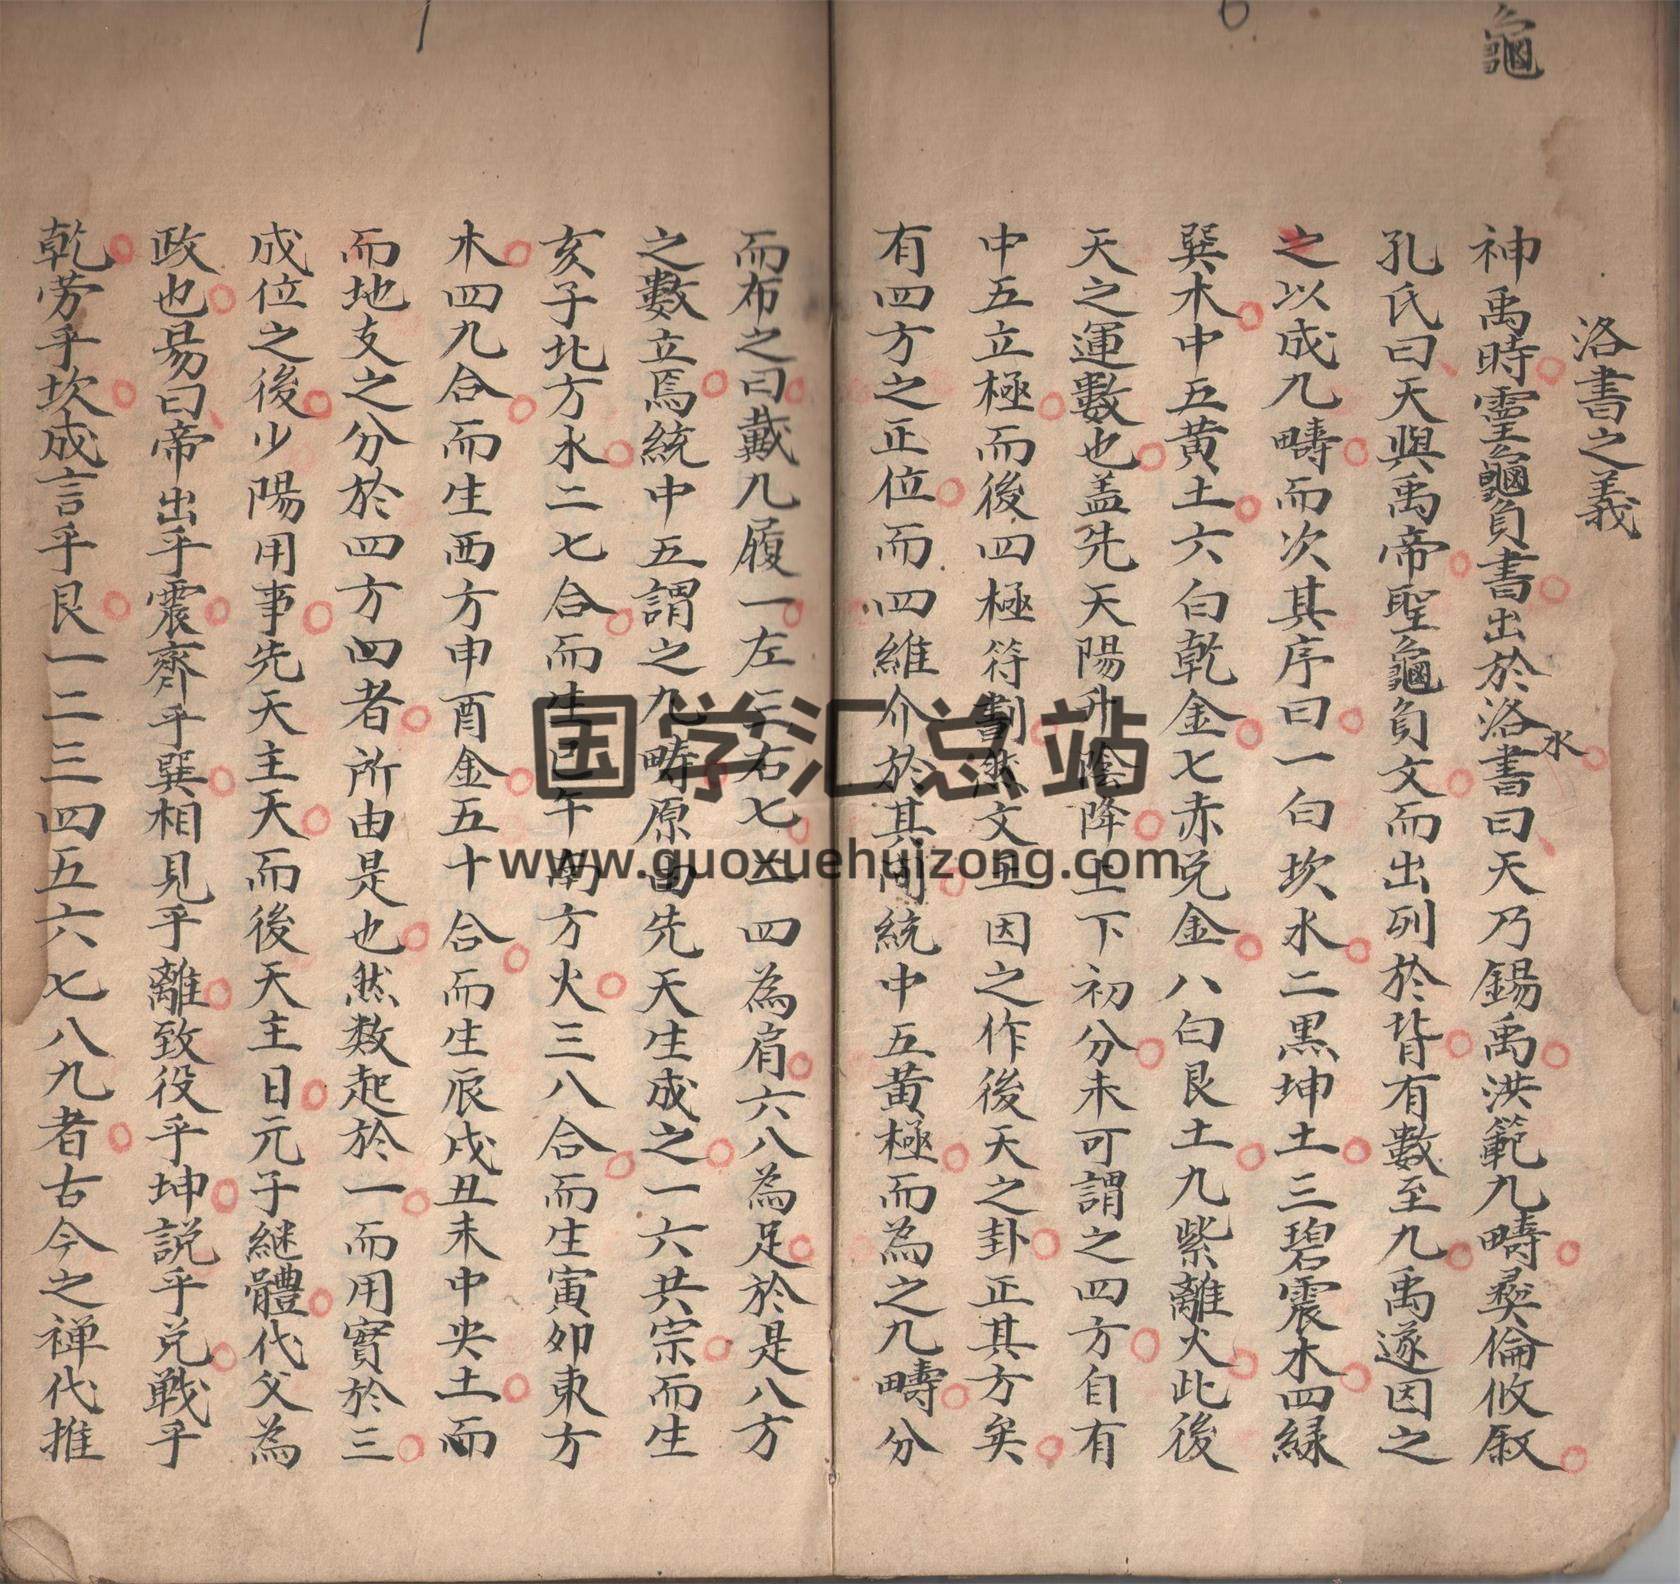 龜
洛書之義
神禹時靈龜負書出於洛水書曰天乃錫禹洪範九疇彝倫攸叙
孔氏曰天與禹帝聖龜負文而出列於背有數至九禹遂因之
之以成九疇而次其序曰一白坎水二黑坤土三碧震木四綠
巽木中五黃土六白乾金七赤兌金八白艮土九紫離火此後
天之運數也蓋先天陽升陰降上下初分未可謂之四方自有
中五立極而後四極符劃然文王因之作後天之卦正其方矣
有四方之正位而四維介於其間統中五黃極而為之九疇分
而布之曰戴九履一左三右七二四為肩六八為足於是八方
之數立焉統中五謂之九疇原由先天生成之一六共宗而生
亥子北方水二七合而生巳午南方火三八合而生寅卯東方
木四九合而生西方申酉金五十合而生辰戌丑未中央土而
而地支之分於四方四者所由是也然数起於一而用實於三
成位之後少陽用事先天主天而後天主日元子継體代父為
政也易曰帝出乎震齊乎巽相見乎離致役乎坤説乎兌戰乎
乾劳乎坎成言乎艮一二三四五六七八九者古今之禅代推
国学汇总站
www.guoxuehuizong.com